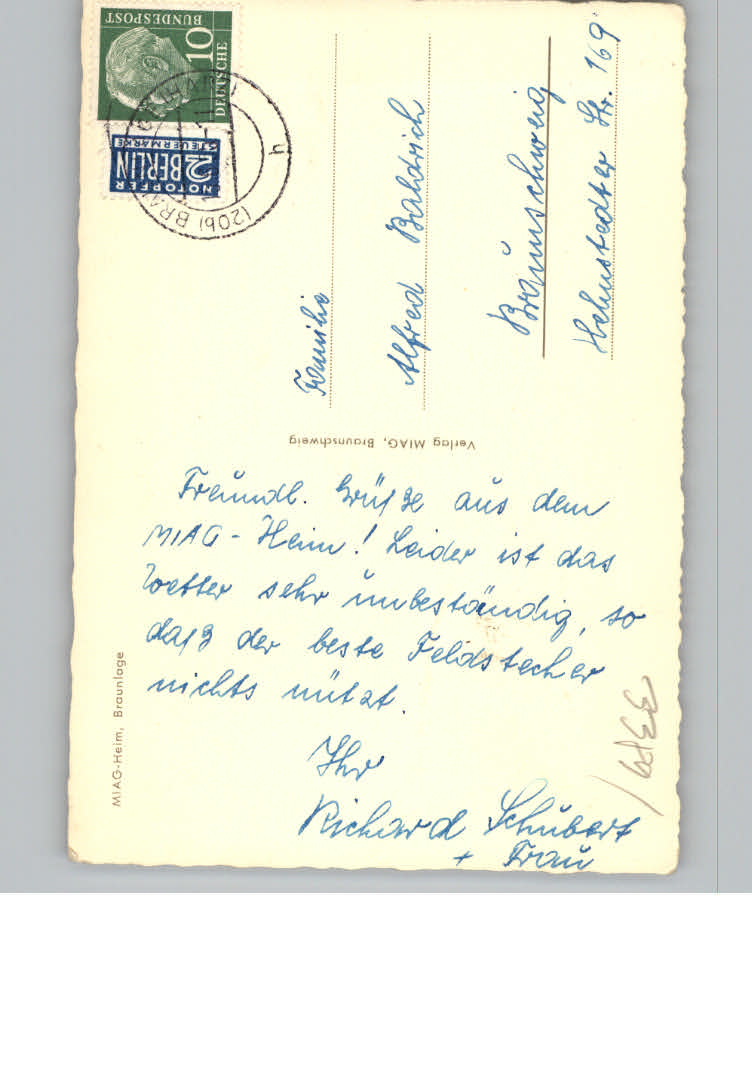 DEUTSCHE
BUNDESPOST
10
NOTOPFER
2 BERLIN
STEUERMARKE
(20b) BRA
h
Familie
Alfred Baldrich
Braunschweig
Helmstedter Str. 169
Verlag MIAG, Braunschweig
Freundl. Grüße aus dem
MIAG-Heim! Leider ist das
Wetter sehr unbeständig, so
daß der beste Feldstecher
nichts nützt.
Ihr
Richard Schubert
+ Frau
MIAG-Heim, Braunlage